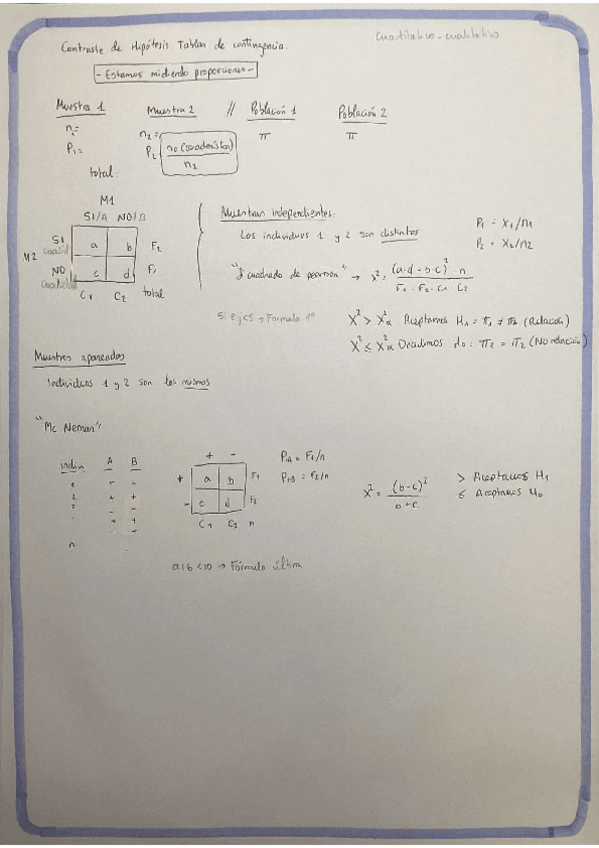 Contraste de Hipótesis. Tablas de contingencia.
cuantitativo - cualitativo
- Estamos midiendo proporciones -
Muestra 1 Muestra 2 // Población 1 Población 2
n1= n2= π π
P1= P2 no (característica) / n2
total:
M1
SI/A NO/B
M2 SI a b F2
NO c d F1
C1 C2 total
Muestras independientes:
Los individuos 1 y 2 son distintos
P1 = X1/n1
P2 = X2/n2
"Ji cuadrado de pearson" → x² = (a·d - b·c)² · n / F1 · F2 · C1 · C2
Si ej<5 → Formula 1º
X² > X²α Aceptamos H1 = π1 ≠ π2 (Relación)
X² ≤ X²α Decidimos Ho: π1 = π2 (No relación)
Muestras apareadas
Individuos 1 y 2 son los mismos
"Mc Nemar"
A B
1
2 + +
+ +
n
+ -
+ a b F1
- c d F2
C1 C2 n
P1A = F1/n
P1B = F2/n
X² = (b-c)² / b+c
> Aceptamos H1
≤ Aceptamos Ho
a+b<10 → Fórmula última